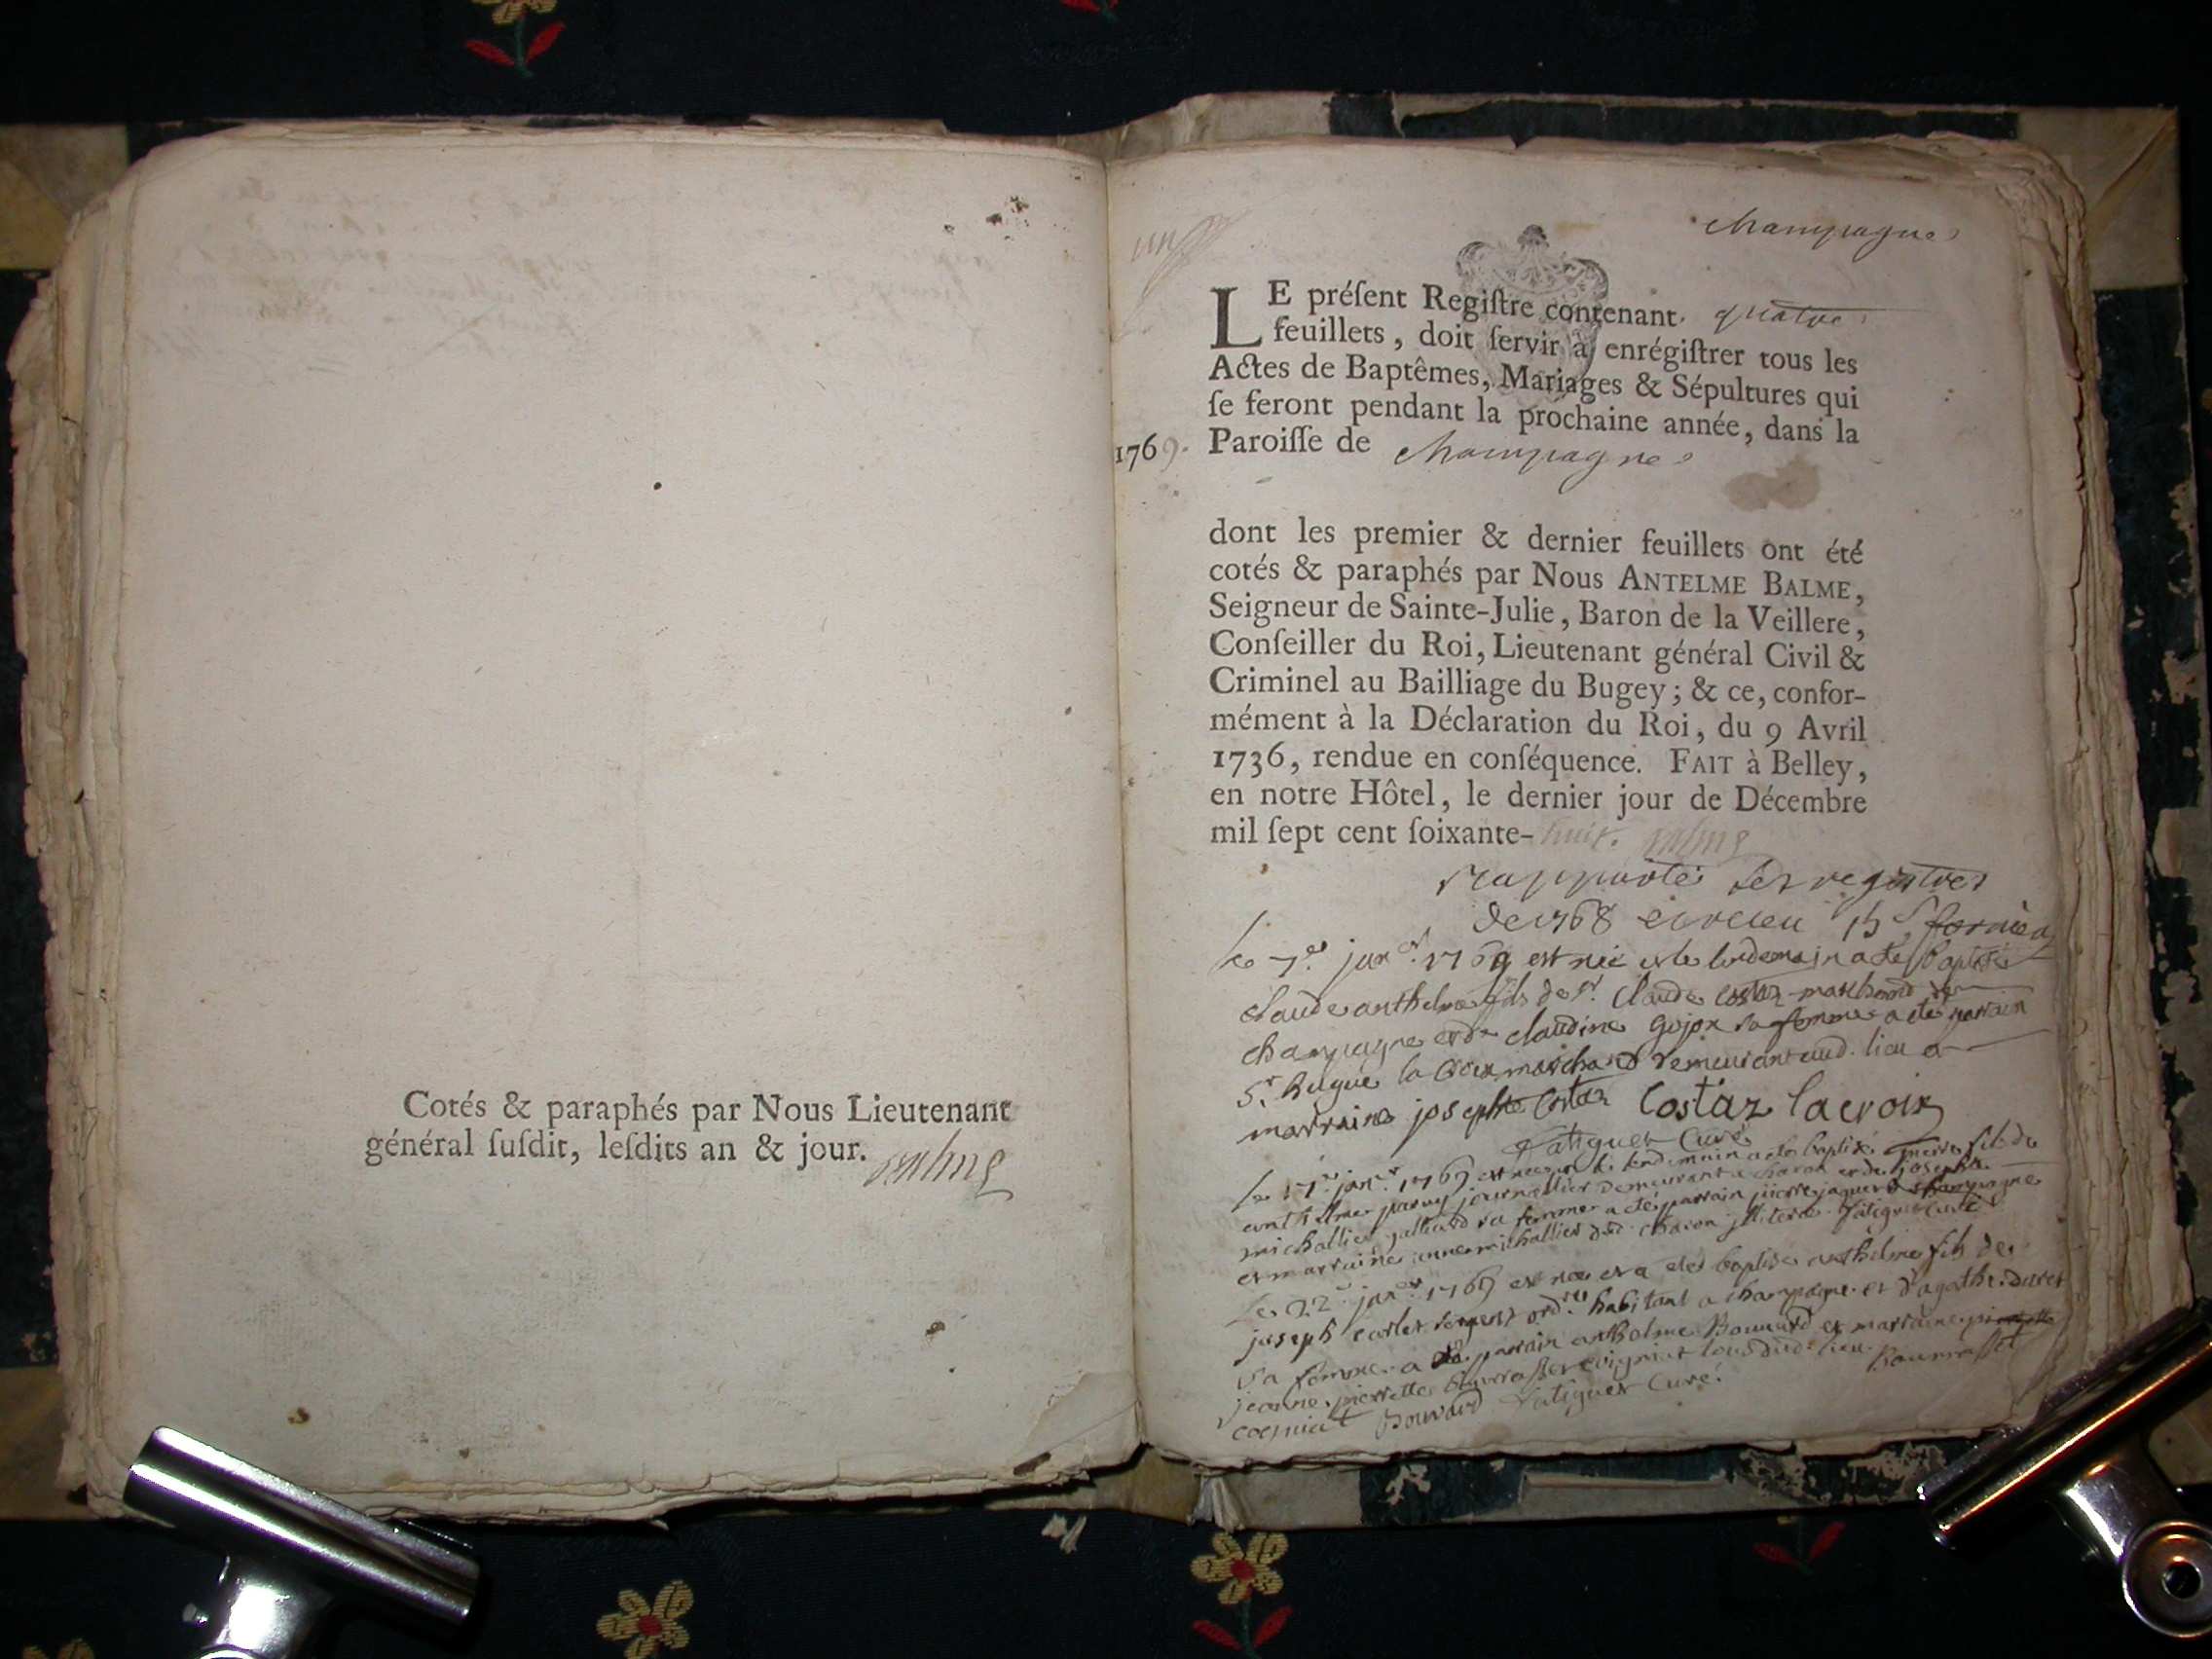 Cotés & paraphés par Nous Lieutenant
général ſuſdit, leſdits an & jour.
Balme
champagne
LE préſent Regiſtre contenant quatre
feuillets, doit ſervir à enrégiſtrer tous les
Actes de Baptêmes, Mariages & Sépultures qui
ſe feront pendant la prochaine année, dans la
1769. Paroiſſe de champagne
dont les premier & dernier feuillets ont été
cotés & paraphés par Nous ANTELME BALME,
Seigneur de Sainte-Julie, Baron de la Veillere,
Conſeiller du Roi, Lieutenant général Civil &
Criminel au Bailliage du Bugey; & ce, confor-
mément à la Déclaration du Roi, du 9 Avril
1736, rendue en conſéquence. FAIT à Belley,
en notre Hôtel, le dernier jour de Décembre
mil ſept cent ſoixante-huit. Balme
rapporté les registres
de 1768 et receu
le 7e janer 1769 est née et le lendemain a été baptisé
claude anthelme fils de sr. claude costaz marchand de
champagne et de claudine gojon sa femme a été parrain
sr. hugue la croix marchand demeurant aud. lieu et
marraine josephte costaz Costaz lacroix
Vatignier Curé
le 17e janer 1769 est nee et le lendemain a été baptisé pierre fils de
anthelme journallier demeurant a charon et de josephte
michallier sa femme a été parrain pierre jaquet champagne
et marraine anne michallier dud. charon illiterés Vatignier Curé
le 22e janer 1769 est nee et a été baptisé anthelme fils de
joseph carlet sergent ordre habitant a champagne et d'agathe
sa femme a été parrain anthelme Bouvard et marraine
jeanne pierrette tous dud. lieu
cogniat Bouvard Vatignier Curé.